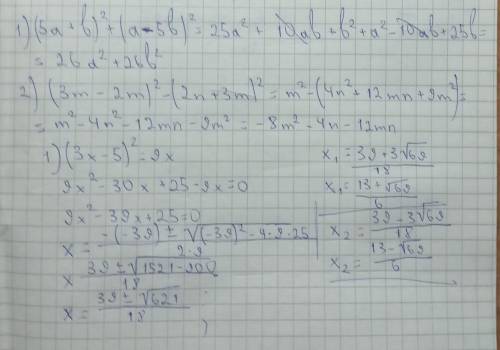 1) (5a + b)² + (a - 5b)² = 25a² + 10ab + b² + a² - 10ab + 25b =
= 26a² + 26b²
2) (3m - 2m)² - (2n + 3m)² = m² - (4n² + 12mn + 9m²) =
= m² - 4n² - 12mn - 9m² = -8m² - 4n - 12mn
1) (3x - 5)² = 9x
9x² - 30x + 25 - 9x = 0
9x² - 39x + 25 = 0
x = (-(-39) ± √((-39)² - 4·9·25)) / (2·9)
x (39 ± √(1521 - 900)) / 18
x = (39 ± √621) / 18
x₁ = (39 + 3√69) / 18
x₁ = (13 + √69) / 6
x₂ = (39 - 3√69) / 18
x₂ = (13 - √69) / 6